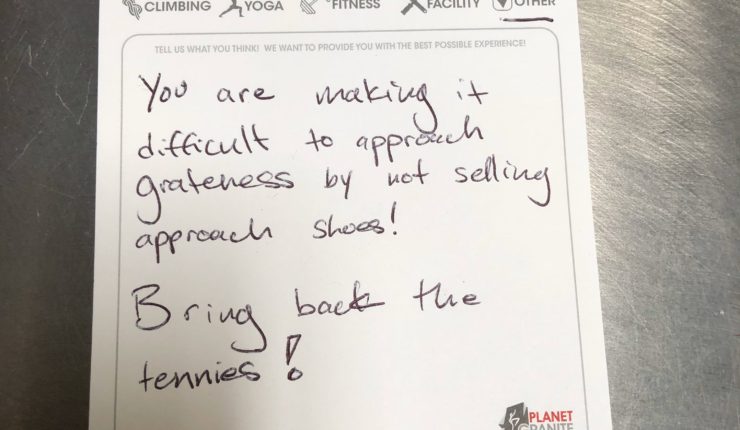 CLIMBING YOGA FITNESS FACILITY OTHER
TELL US WHAT YOU THINK! WE WANT TO PROVIDE YOU WITH THE BEST POSSIBLE EXPERIENCE!
You are making it
difficult to approach
grateness by not selling
approach shoes!
Bring back the
tennies!
PLANET
GRANITE